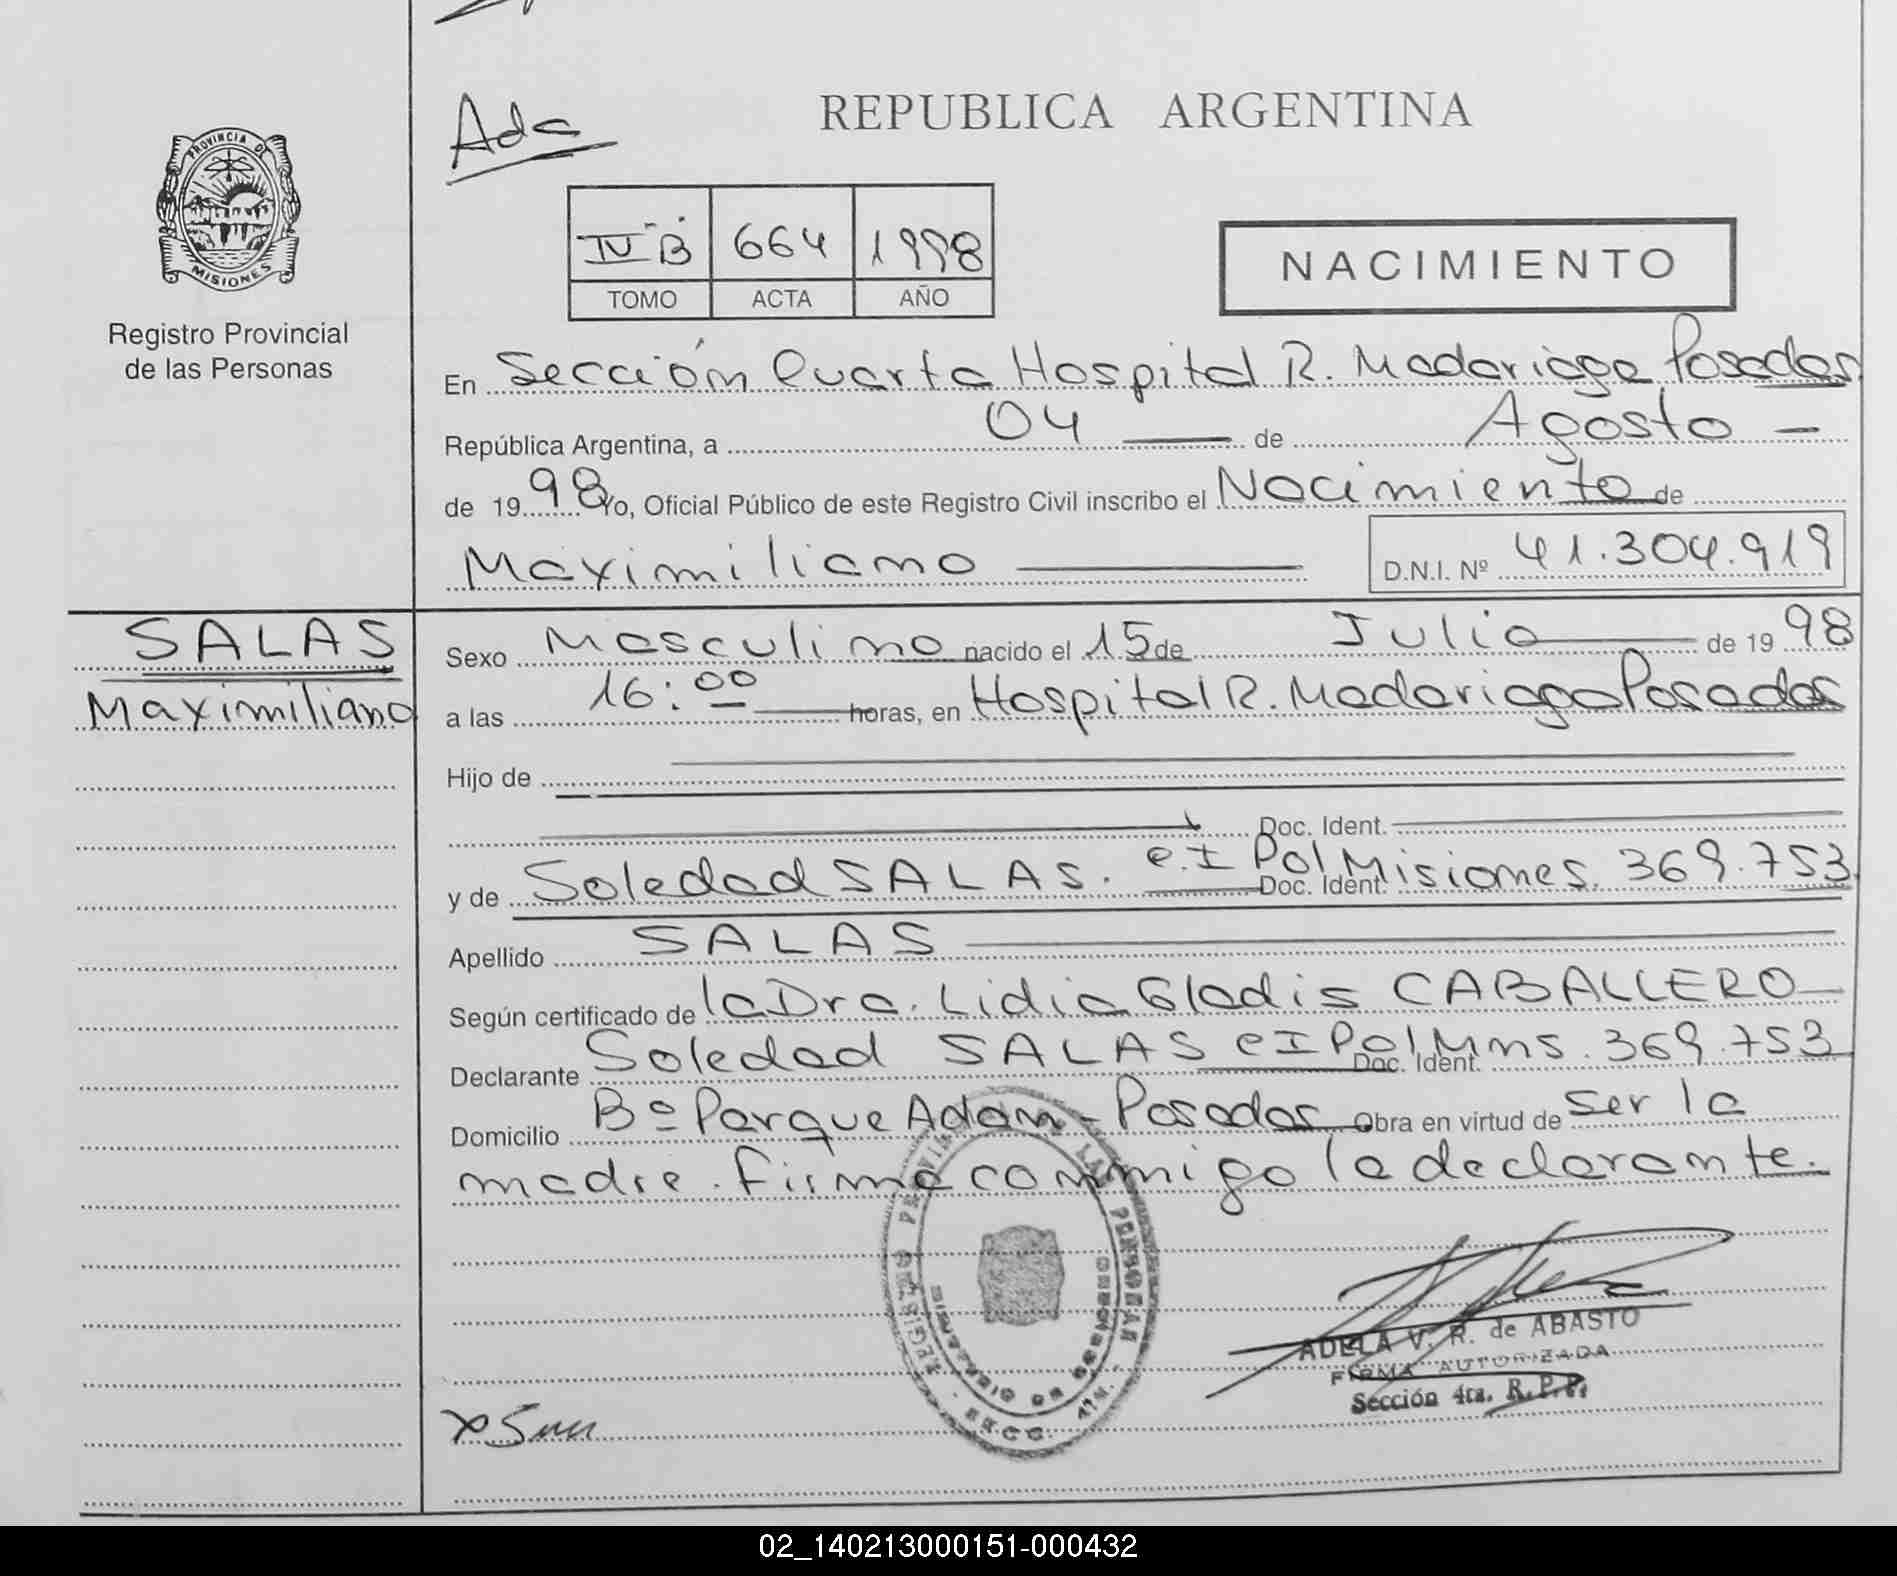 Ada
REPUBLICA ARGENTINA
PROVINCIA DE
MISIONES
Registro Provincial
de las Personas
IV B 664 1998
TOMO ACTA AÑO
NACIMIENTO
En Sección Cuarta Hospital R. Madariaga Posadas
República Argentina, a 04 de Agosto -
de 19 98 Yo, Oficial Público de este Registro Civil inscribo el Nacimiento de
Maximiliano D.N.I. Nº 41.304.919
SALAS
Maximiliano
Sexo Masculino nacido el 15 de Julio de 19 98
a las 16:00 horas, en Hospital R. Madariaga Posadas
Hijo de
Doc. Ident.
y de Soledad SALAS. c.I Pol Doc. Ident. Misiones. 369.753
Apellido SALAS
Según certificado de la Dra. Lidia Gladis CABALLERO
Declarante Soledad SALAS cI Pol Doc. Ident. Mns. 369.753
Domicilio Bº Parque Adam - Posadas Obra en virtud de ser la
madre. Firma conmigo la declarante.
ADELA V. R. de ABASTO
FIRMA AUTORIZADA
Sección 4ta. R.P.P.
02_140213000151-000432